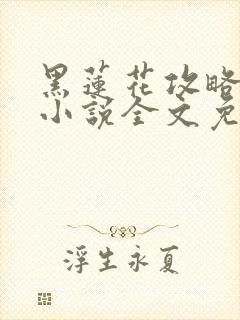 黑蓮花攻略
小說全文免
浮生永夏